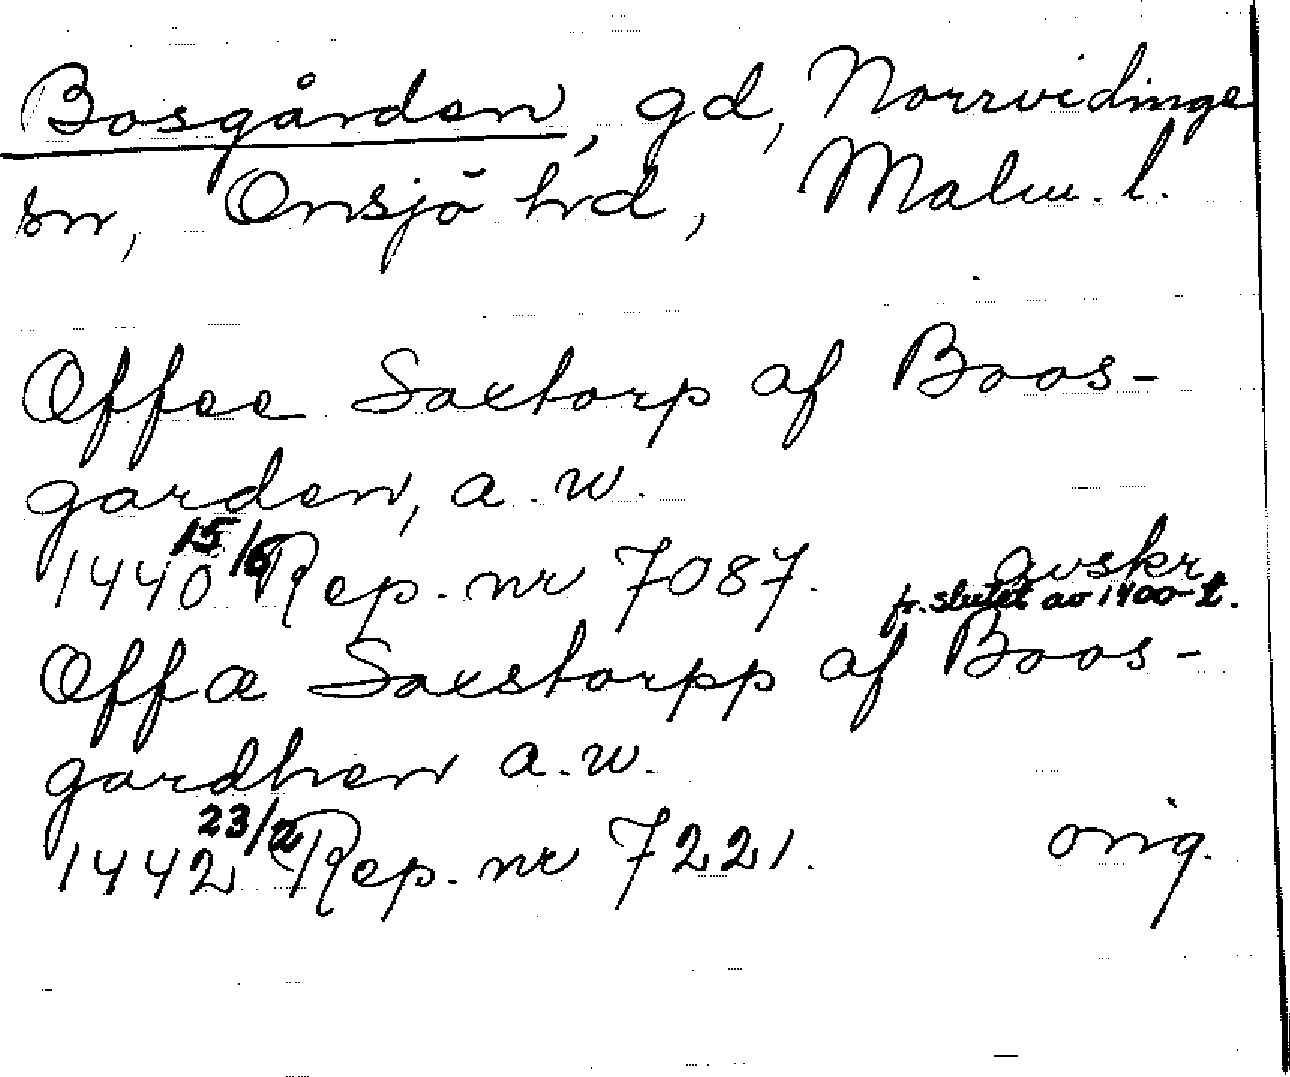 Bosgården, gd, Norrvidinge
sn, Onsjö hd, Malm. l.
Offee Saxtorp af Boos-
garden, a.w.
1440 15/6 Rep. nr 7087. avskr.
fr. slutet av 1400-t.
Offæ Saxstorpp af Boos-
gardhen a.w.
1442 23/2 Rep. nr 7221. orig.